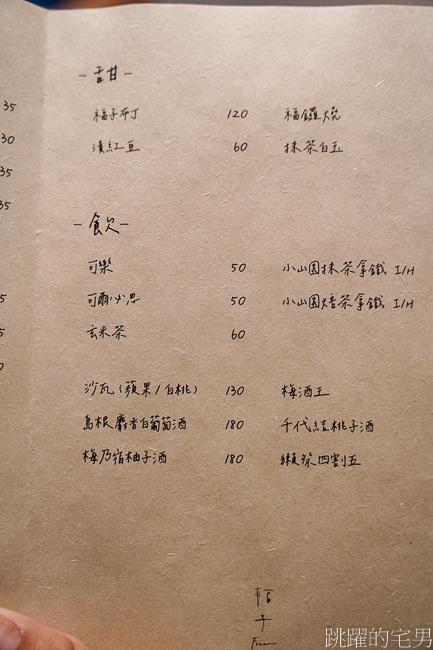 35
30
35
35
5
5
0
- 舌甘 -
福子布丁 120 福鑼燒
漬紅豆 60 抹茶白玉
- 飲 -
可樂 50 小山園抹茶拿鐵 I/H
可爾必思 50 小山園焙茶拿鐵 I/H
玄米茶 60
沙瓦(蘋果/白桃) 130 梅酒王
島根麝香白葡萄酒 180 千代結桃子酒
梅乃宿柚子酒 180 獺祭四割五
跳躍的宅男